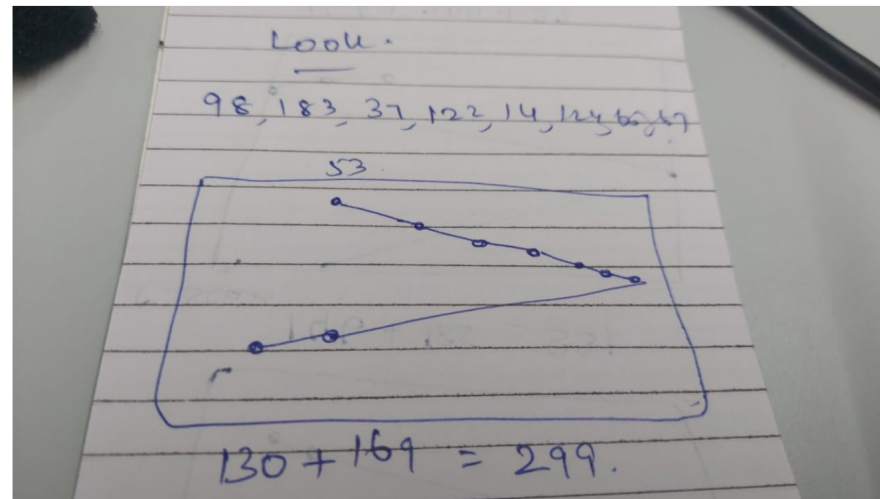 Look.
98, 183, 37, 122, 14, 124, 65, 67
53
130 + 169 = 299.